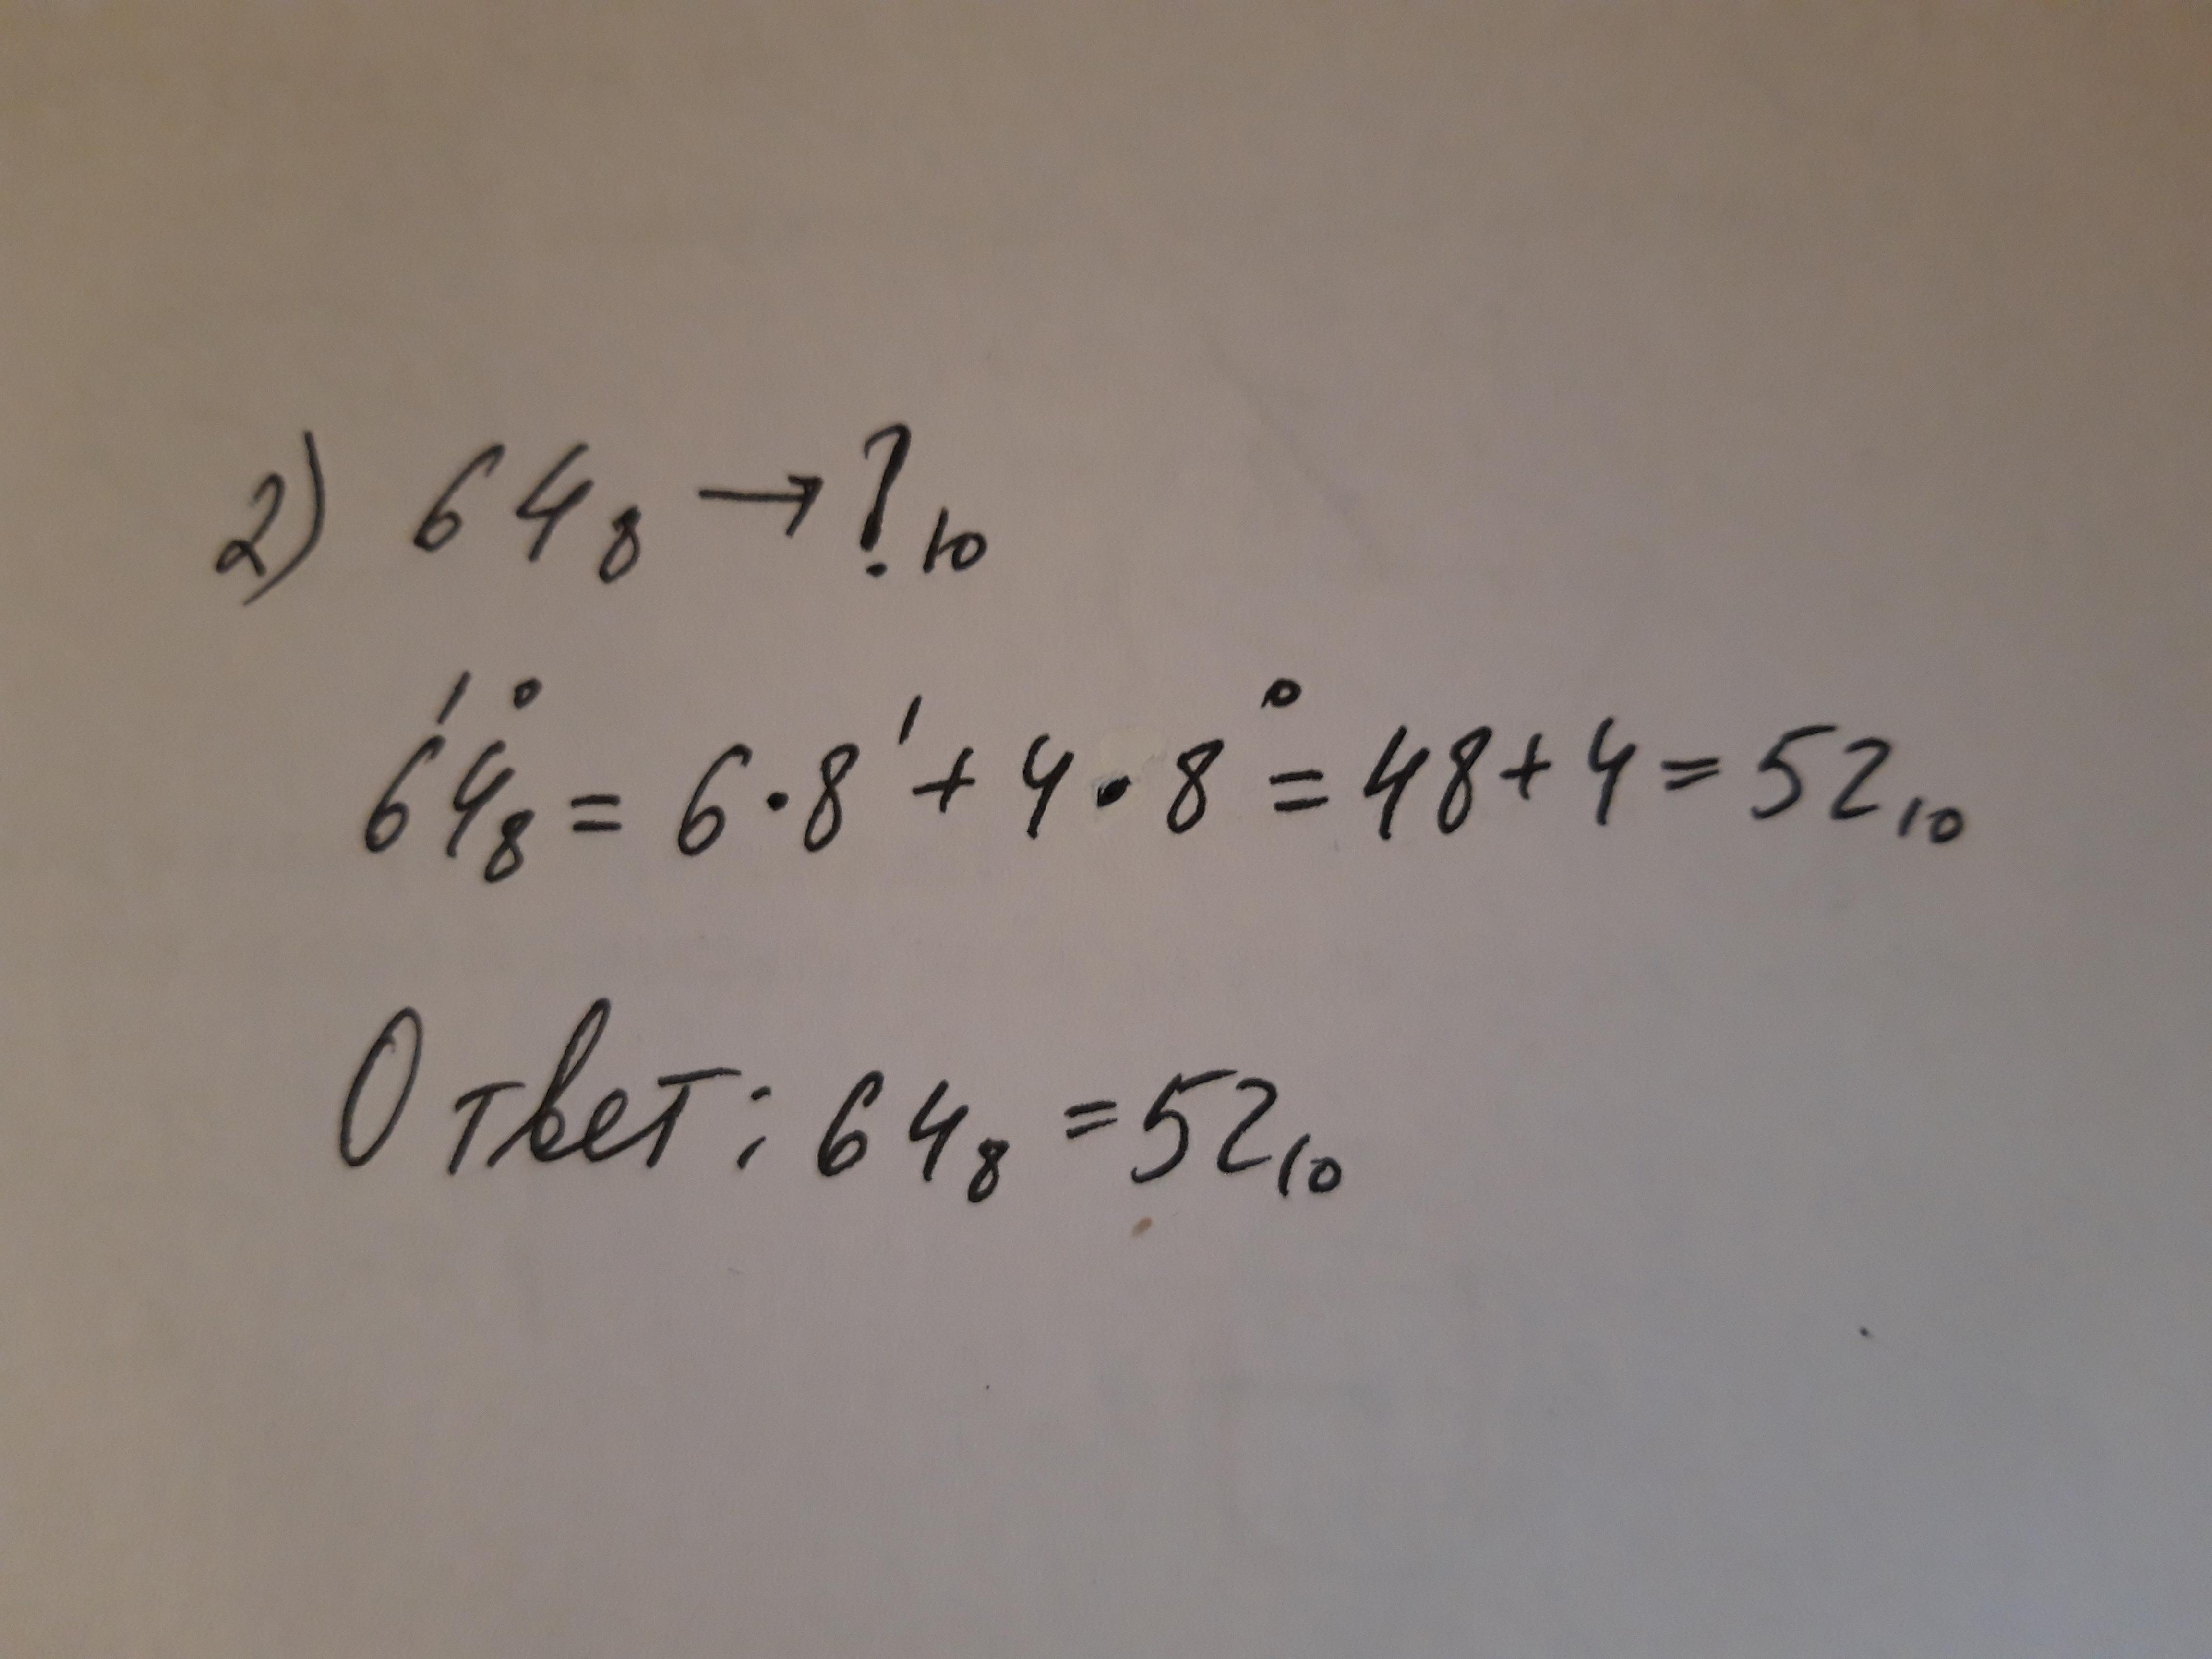 2) 64₈ → ?₁₀
6¹4⁰₈ = 6·8¹ + 4·8⁰ = 48 + 4 = 52₁₀
Ответ: 64₈ = 52₁₀